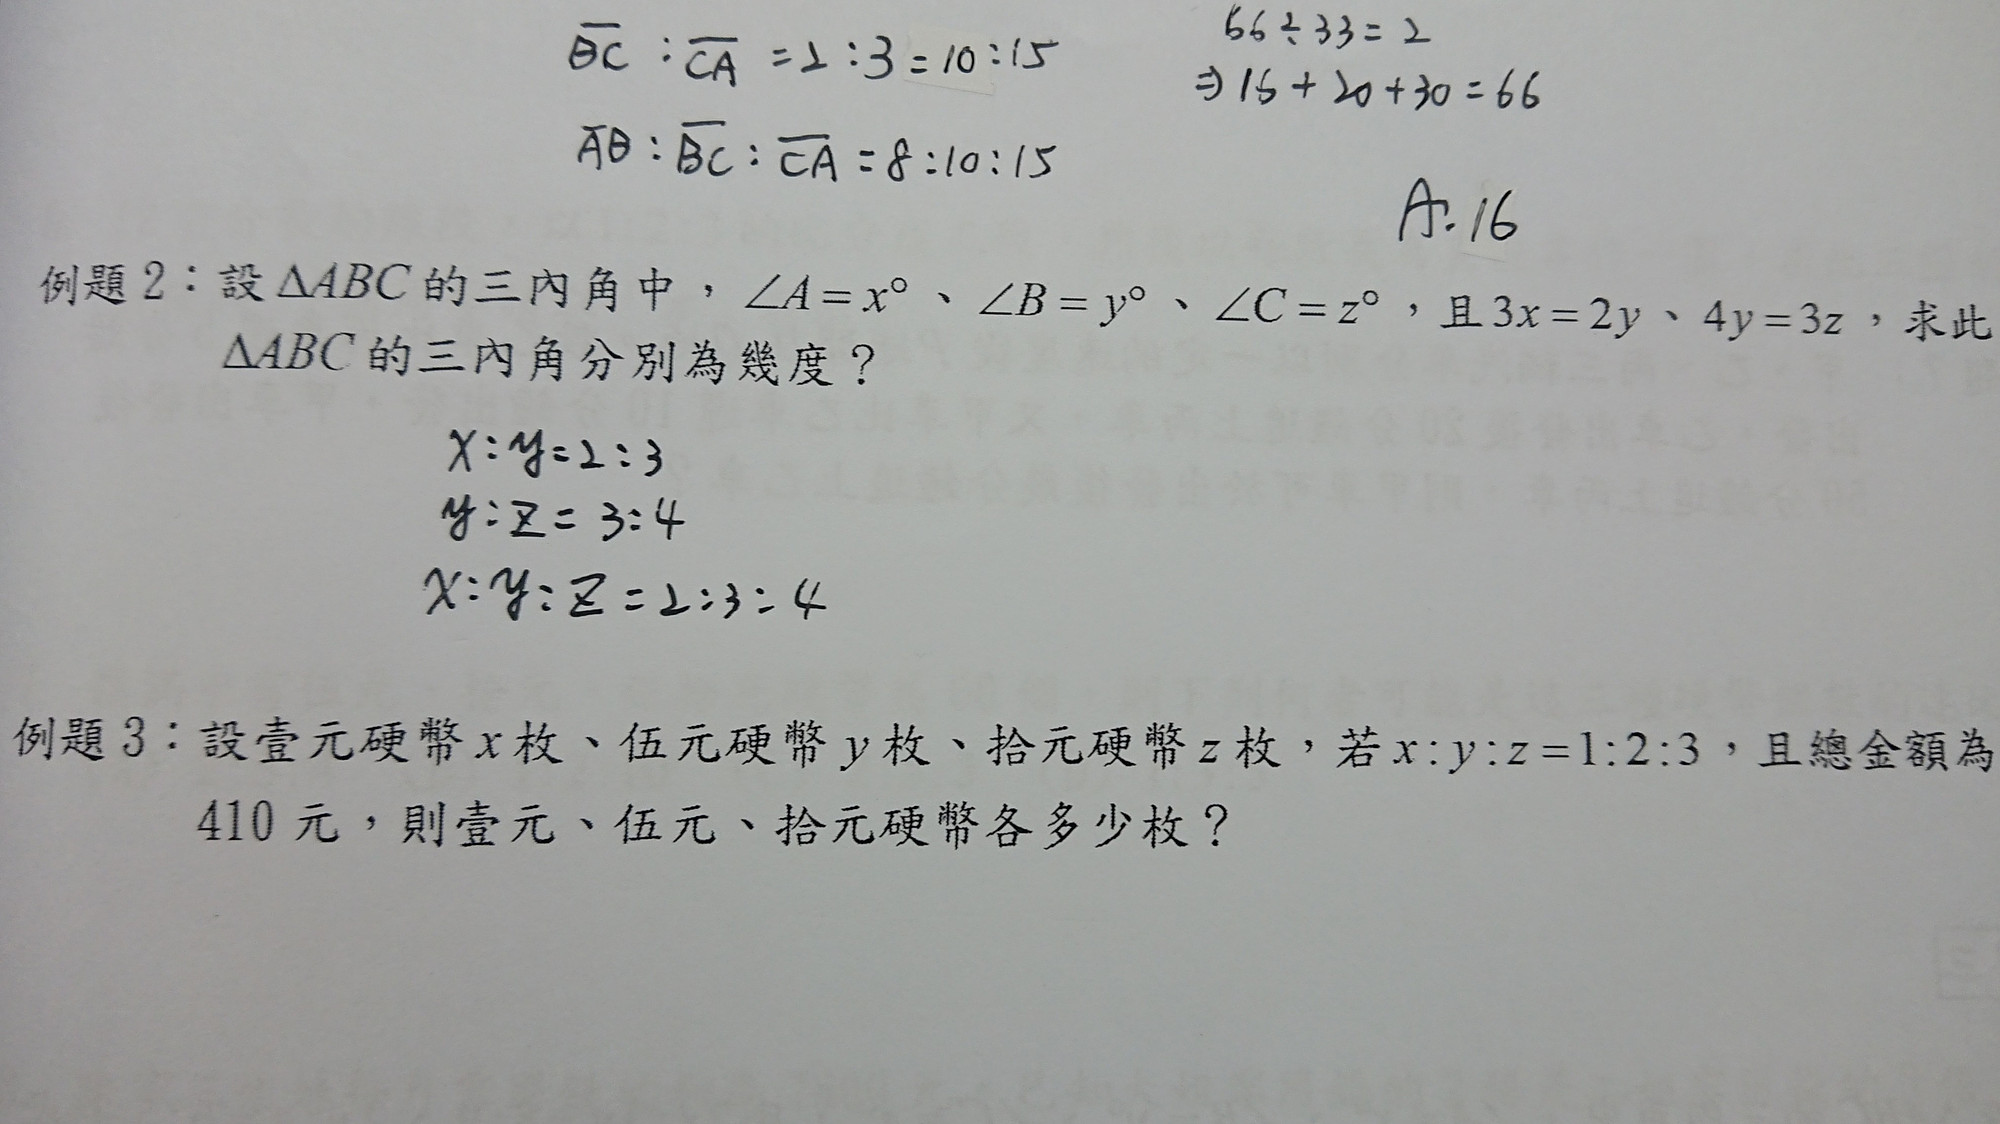 BC : CA = 2 : 3 = 10 : 15
66 ÷ 33 = 2
⇒ 16 + 20 + 30 = 66
AB : BC : CA = 8 : 10 : 15
A: 16
例題 2：設 ΔABC 的三內角中，∠A = x°、∠B = y°、∠C = z°，且 3x = 2y、4y = 3z，求此
ΔABC 的三內角分別為幾度？
x : y = 2 : 3
y : z = 3 : 4
x : y : z = 2 : 3 : 4
例題 3：設壹元硬幣 x 枚、伍元硬幣 y 枚、拾元硬幣 z 枚，若 x : y : z = 1 : 2 : 3，且總金額為
410 元，則壹元、伍元、拾元硬幣各多少枚？